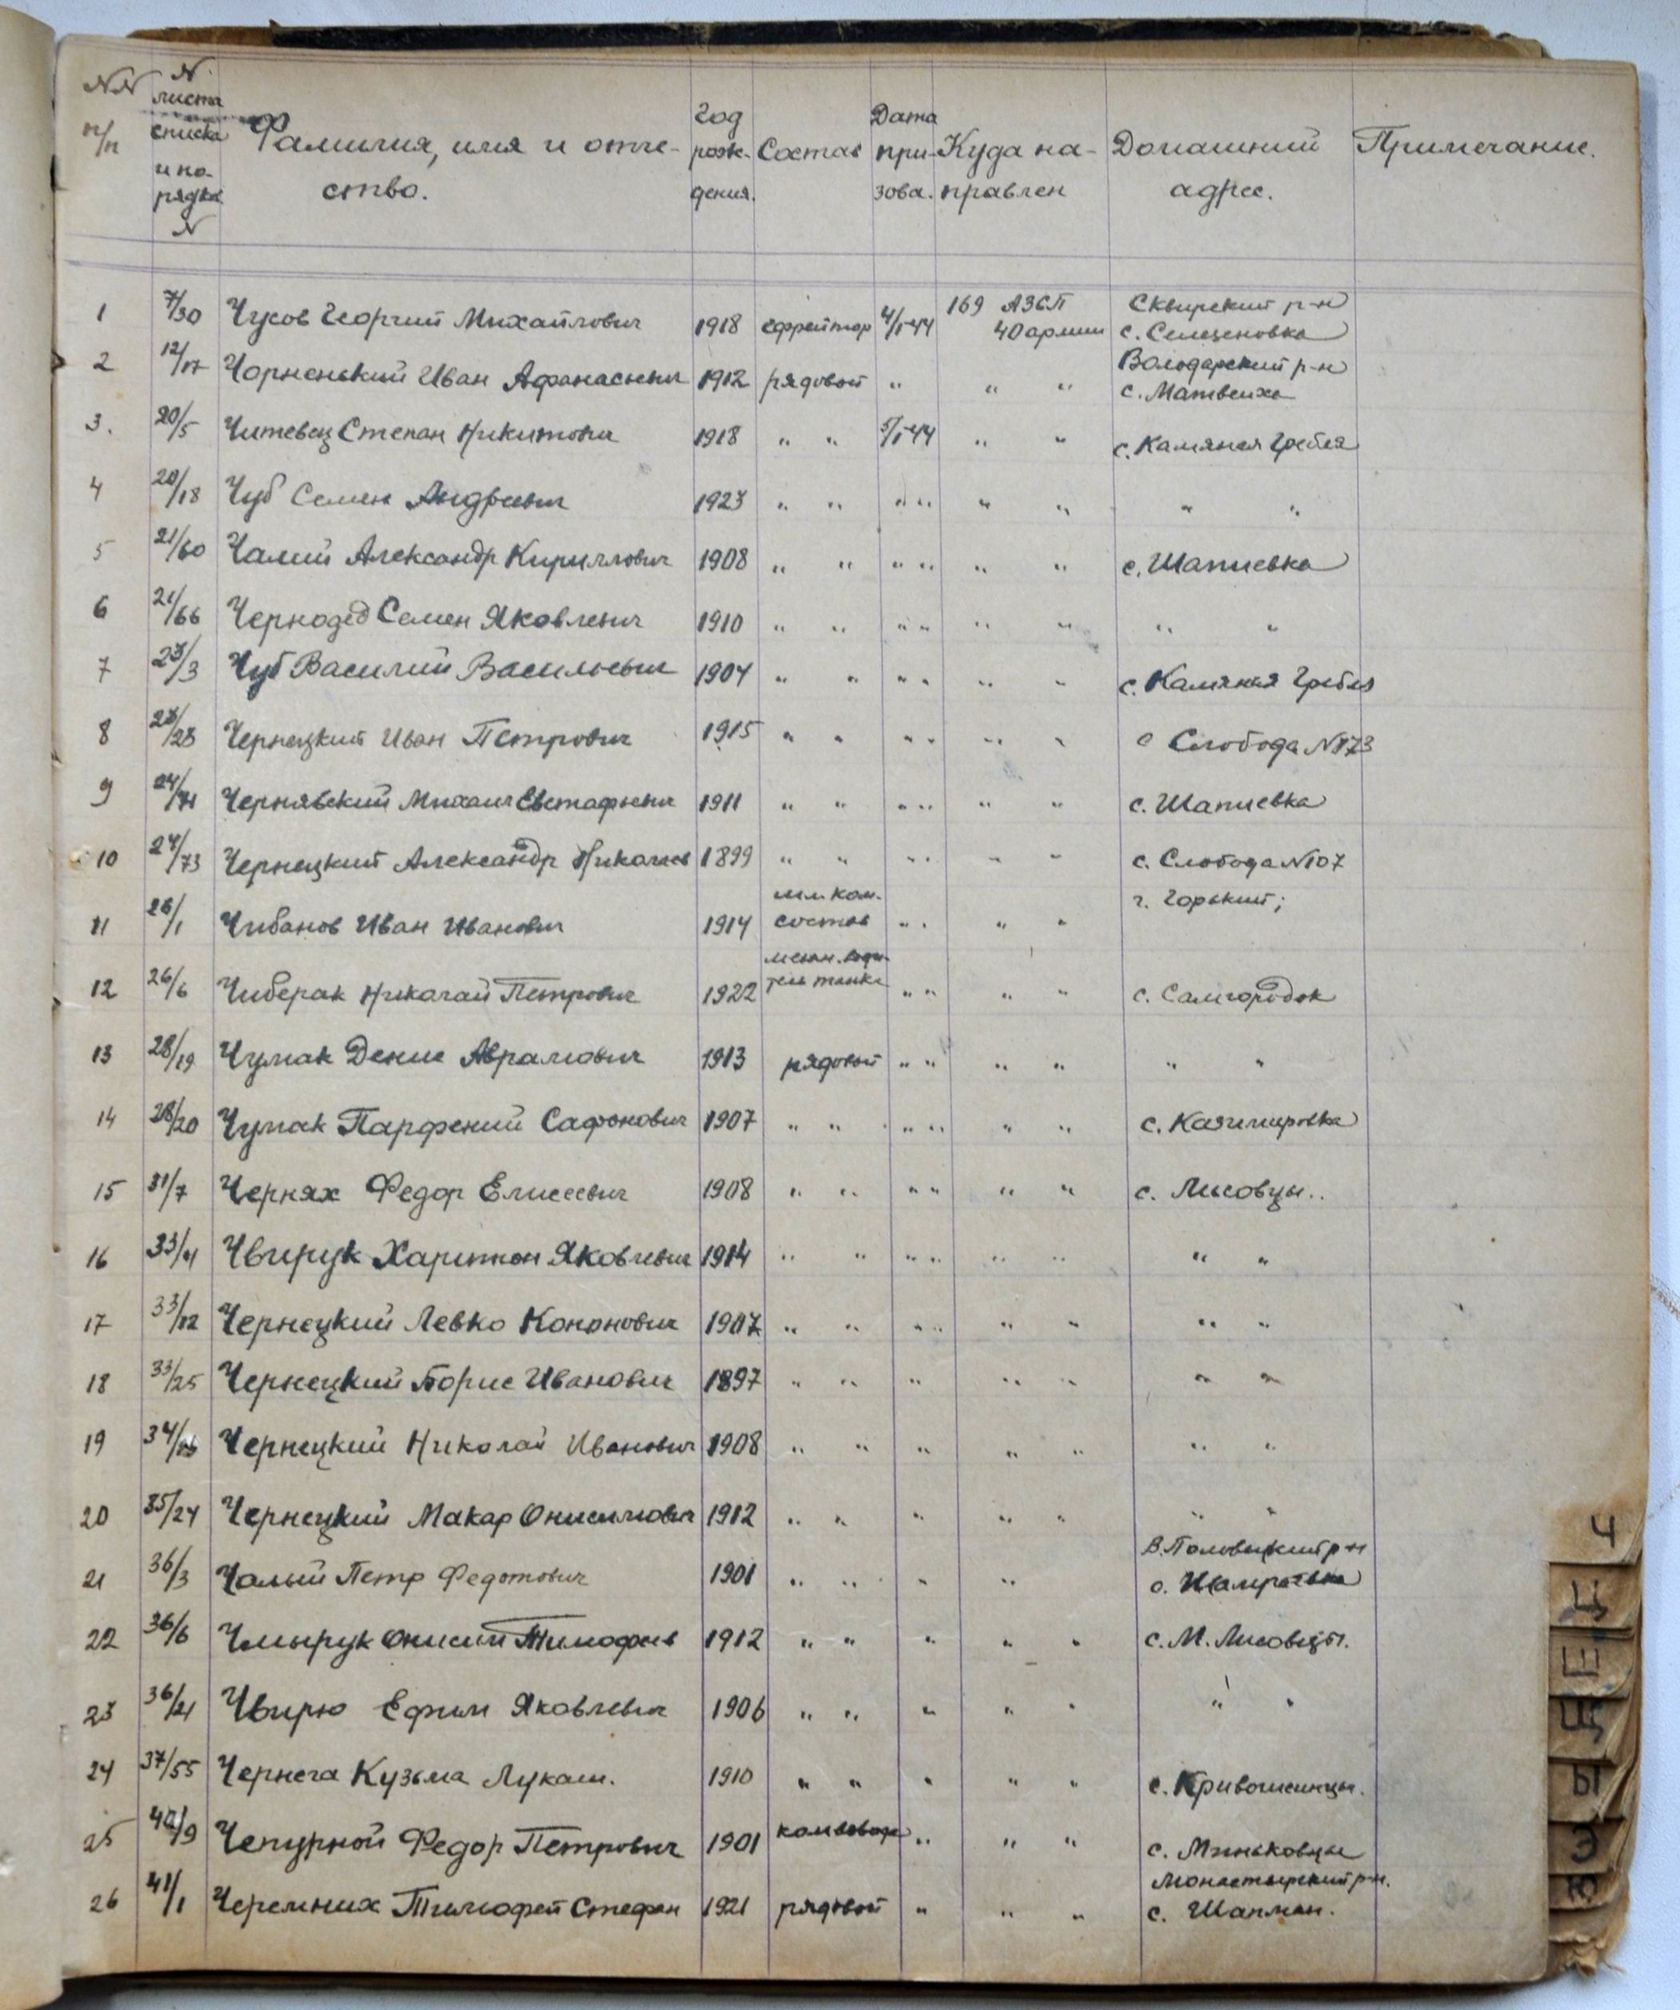 NN п/п | N листа списка и порядка N | Фамилия, имя и отчество. | Год рождения. | Состав | Дата призова. | Куда направлен | Домашний адрес. | Примечание.
1 7/30 Чусов Георгий Михайлович 1918 ефрейтор 4/I-44 169 АЗСП 40 армии Сквирский р-н с. Селеценовка
2 12/17 Чорненький Иван Афанасьевич 1912 рядовой " " " Володарский р-н с. Матвеиха
3. 20/5 Читевец Степан Никитович 1918 " " 5/I-44 " " с. Камяная Гребля
4 20/18 Чуб Семен Андреевич 1923 " " " " " " " "
5 21/60 Чалий Александр Кириллович 1908 " " " " " " с. Шапиевка
6 21/66 Чернодед Семен Яковлевич 1910 " " " " " " " "
7 23/3 Чуб Василий Васильевич 1904 " " " " " " с. Камяная Гребля
8 23/28 Чернецкий Иван Петрович 1915 " " " " " " с Слобода N173
9 24/71 Чернявский Михаил Евстафьевич 1911 " " " " " " с. Шапиевка
10 24/73 Чернецкий Александр Николаев 1899 " " " " " " с. Слобода N107
11 26/1 Чибанов Иван Иванович 1914 мл. ком. состав " " " " г. Горький;
12 26/6 Чиберак Николай Петрович 1922 механ. водитель танка " " " " с. Самгородок
13 28/19 Чумак Денис Аврамович 1913 рядовой " " " " " "
14 28/20 Чумак Парфений Сафонович 1907 " " " " " " с. Казимировка
15 31/7 Чернях Федор Елисеевич 1908 " " " " " " с. Лисовцы..
16 33/4 Чвирук Харитон Яковлевич 1914 " " " " " " " "
17 33/12 Чернецкий Левко Кононович 1907 " " " " " " " "
18 33/25 Чернецкий Борис Иванович 1897 " " " " " " "
19 34/ Чернецкий Николай Иванович 1908 " " " " " " "
20 35/24 Чернецкий Макар Онисимович 1912 " " " " " " "
21 36/3 Чалый Петр Федотович 1901 " " " " В. Половецкий р-н с. Шамраевка
22 36/6 Чмырук Онисий Тимофеев 1912 " " " " " с. М. Лисовцы.
23 36/21 Чвирю Ефим Яковлевич 1906 " " " " " " "
24 37/55 Чернега Кузьма Лукаш. 1910 " " " " " с. Кривошеинцы.
25 40/9 Чепурной Федор Петрович 1901 комвзвода " " " с. Миньковцы
26 41/1 Черемних Тимофей Стефан 1921 рядовой " " " Монастырский р-н. с. Шапман.
Ч
Ц
Ш
Щ
Ы
Э
Ю